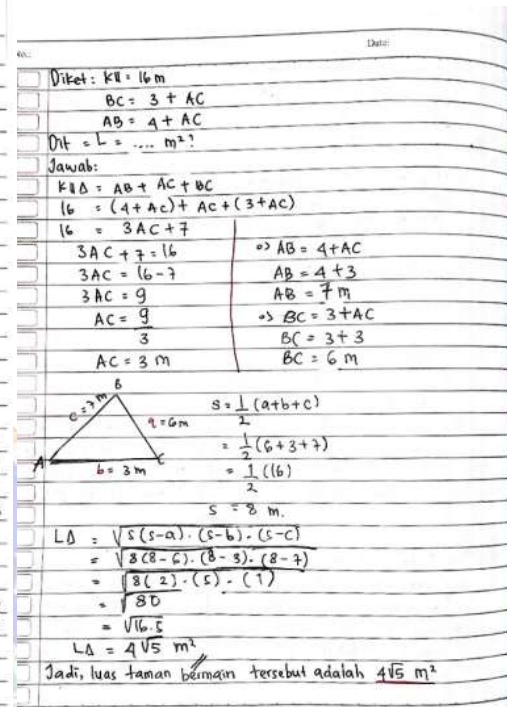 No.:
Date:
Diket: Kll = 16 m
BC = 3 + AC
AB = 4 + AC
Dit = L = .... m²?
Jawab:
KllΔ = AB + AC + BC
16 = (4 + AC) + AC + (3 + AC)
16 = 3AC + 7
3AC + 7 = 16
3AC = 16 - 7
3AC = 9
AC = 9/3
AC = 3 m
=> AB = 4 + AC
AB = 4 + 3
AB = 7 m
=> BC = 3 + AC
BC = 3 + 3
BC = 6 m
B
c = 7 m
a = 6m
A
b = 3 m
C
S = 1/2 (a+b+c)
= 1/2 (6+3+7)
= 1/2 (16)
S = 8 m.
LΔ = √s(s-a).(s-b).(s-c)
= √8(8-6).(8-3).(8-7)
= √8(2).(5).(1)
= √80
= √16.5
LΔ = 4√5 m²
Jadi, luas taman bermain tersebut adalah 4√5 m²